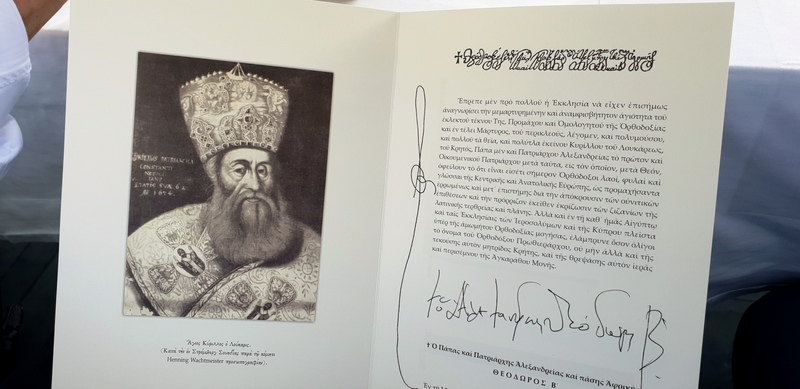 CONSTANTI
Ἅγιος Κύριλλος ὁ Λούκαρις.
Henning Wachtmeister προσωπογραφίαν).
Ἔπρεπε μὲν πρὸ πολλοῦ ἡ Ἐκκλησία νὰ εἶχεν ἐπισήμως
ἀναγνωρίσει τὴν μεμαρτυρημένην καὶ ἀναμφισβήτητον ἁγιότητα τοῦ
ἐκλεκτοῦ τέκνου Της, Προμάχου καὶ Ὁμολογητοῦ τῆς Ὀρθοδοξίας
καὶ ἐν τέλει Μάρτυρος, τοῦ περικλεοῦς, λέγομεν, καὶ πολυμούσου,
καὶ πολλοῦ τὰ θεῖα, καὶ πολύτλα ἐκείνου Κυρίλλου τοῦ Λουκάρεως,
τοῦ Κρητός, Πάπα μὲν καὶ Πατριάρχου Ἀλεξανδρείας τὸ πρῶτον καὶ
Οἰκουμενικοῦ Πατριάρχου μετὰ ταῦτα, εἰς τὸν ὁποῖον, μετὰ Θεόν,
ὀφείλουν τὸ ὅτι εἶναι εἰσέτι σήμερον Ὀρθόδοξοι λαοί, φυλαὶ καὶ
γλῶσσαι τῆς Κεντρικῆς καὶ Ἀνατολικῆς Εὐρώπης, ὡς προμαχήσαντα
ἐρρωμένως καὶ μετ᾽ ἐπιστήμης διὰ τὴν ἀπόκρουσιν τῶν οὐνιτικῶν
ἐπιθέσεων καὶ τὴν πρόρριζον ἐκεῖθεν ἐκρίζωσιν τῶν ζιζανίων τῆς
Λατινικῆς τερθρείας καὶ πλάνης. Ἀλλὰ καὶ ἐν τῇ καθ᾽ ἡμᾶς Αἰγύπτῳ
καὶ ταῖς Ἐκκλησίαις τῶν Ἱεροσολύμων καὶ τῆς Κύπρου πλεῖστα
ὑπὲρ τῆς ἀμωμήτου Ὀρθοδοξίας μογήσας, ἐλάμπρυνε ὅσον ὀλίγοι
τὸ ὄνομα τοῦ Ὀρθοδόξου Πρωθιεράρχου, οὐ μὴν ἀλλὰ καὶ τῆς
τεκούσης αὐτὸν μητρίδος Κρήτης, καὶ τῆς θρεψάσης αὐτὸν ἱερᾶς
καὶ περισέμνου τῆς Ἀγκαράθου Μονῆς.
† Ὁ Πάπας καὶ Πατριάρχης Ἀλεξανδρείας καὶ πάσης Ἀφρικῆς
ΘΕΟΔΩΡΟΣ Β΄